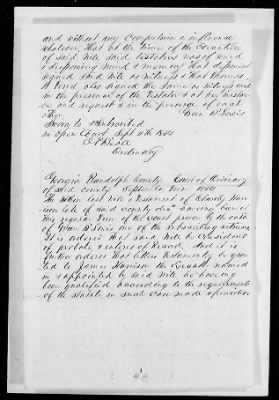 and without any Compulsion & influence
whatever, that at the time of the Execution
of said Will said testator was of sound
& disposing mind & memory that deponent
signed said Will as witness & that Thomas
also signed the same as witness and
in the presence of the Testator & at his
and request & in the presence of each
other
Sworn to & Subscribed
in open Court Sept 11th
Ordinary
Georgia Randolph County Court of Ordinary
of said county September Term
The within last Will & Testament of
late of said county dec'd having been at
this regular Term of the Court proven by the oath
of one of the subscribing witnesses
It is ordered that said Will be admitted
of probate & ordered of Record, And it is
further ordered that letters testamentary be gran
ted to James Harrison the Executor named
in & appointed by said Will he having
been qualified according to the requirements
of the statute in such case made & provided